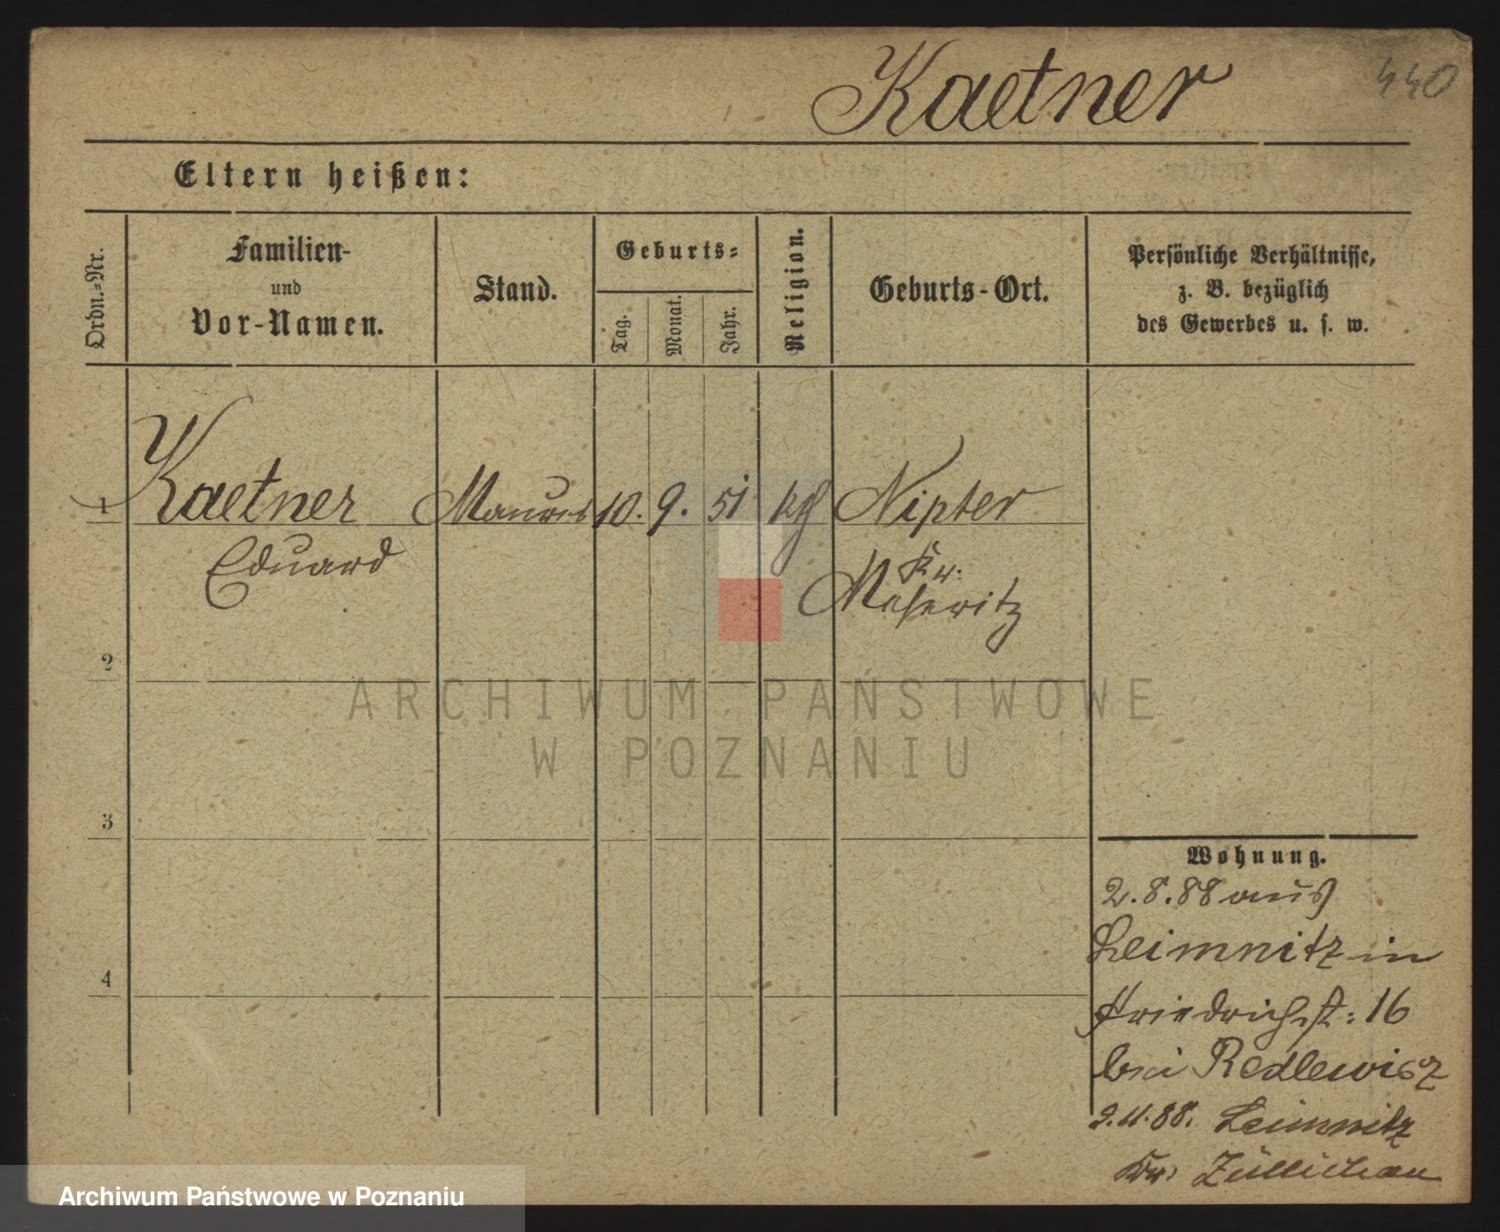 Kaetner
440
Eltern heißen:
Ordn.-Nr.
Familien-
und
Vor-Namen.
Stand.
Geburts-
Tag.
Monat.
Jahr.
Religion.
Geburts-Ort.
Persönliche Verhältnisse,
z. B. bezüglich
des Gewerbes u. s. w.
1 Kaetner Maurer 10. 9. 51 kg Nipter
Eduard
Kr.
Meseritz
2
3
4
Wohnung.
2.8.88 aus
Leimnitz in
Friedrichst: 16
bei Redlewisz
9.11.88. Leimnitz
Kr. Züllichau
ARCHIWUM PAŃSTWOWE
W POZNANIU
Archiwum Państwowe w Poznaniu